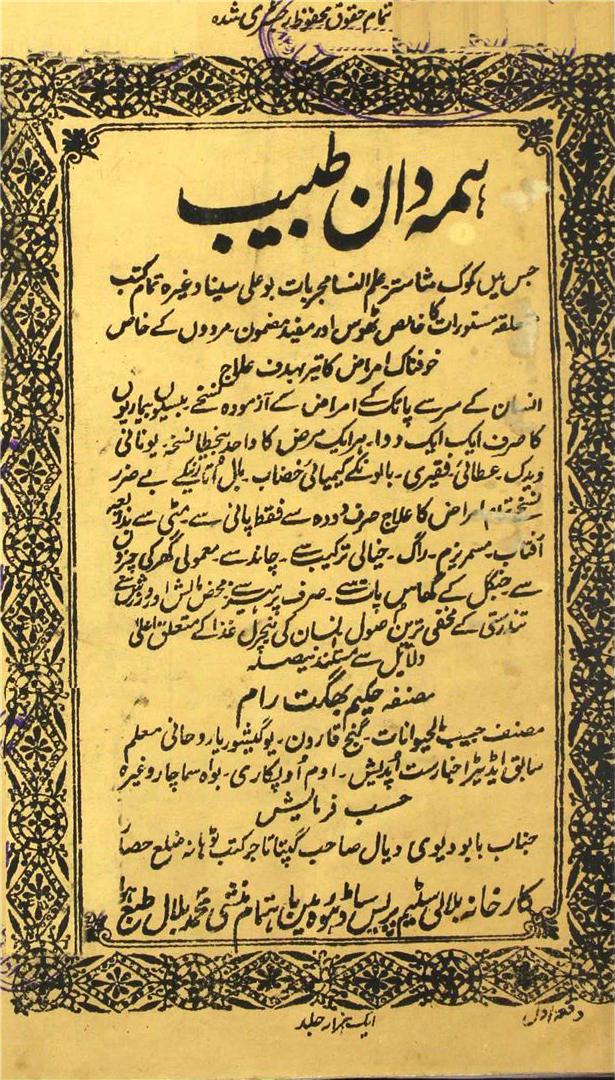 تمام حقوق محفوظ رجسٹری شدہ
ہمہ دان طبیب
جس میں کوک شاستر علم النسا مجربات بو علی سینا وغیرہ تمام کتب
متعلقہ مستورات کا خالص ٹھوس اور مفید مضمون۔ مردوں کے خاص
خوفناک امراض کا تیر بہدف علاج
انسان کے سر سے پا تک کے امراض کے آزمودہ نسخے۔ بیسیوں بیماریوں
کا صرف ایک ایک دوا۔ ہر ایک مرض کا واحد بیخطا نسخہ۔ یونانی
ویدک۔ عطائی۔ فقیری۔ بالونکے کیمیائی خضاب۔ بال اُڑانیکے بے ضرر
نسخے تمام امراض کا علاج صرف دودہ سے فقط پانی سے۔ مٹی سے بذریعہ
آفتاب۔ مسمریزم۔ راگ۔ خیالی ترکیب سے۔ چاند سے۔ معمولی گھر کی چیزوں
سے۔ جنگل کے گھاس پات سے۔ صرف پرہیز سے۔ محض مالش اور ورزش سے
تندرستی کے مخفی ترین اُصول۔ انسان کی نیچرل غذا کے متعلق اعلیٰ
دلایل سے مستند فیصلہ
مصنفہ حکیم بھگت رام
مصنف طبیب الحیوانات۔ گنج قارون۔ یوگیشور یا روحانی معلم
سابق ایڈیٹر اخبار ست اُپدیش۔ اوم اُوپکاری۔ بواہ سماچار وغیرہ
حسب فرمایش
جناب بابو دیوی دیال صاحب گپتا تاجر کتب ٹوہانہ ضلع حصار
کارخانہ بلالی سٹیم پریس ساڈہورہ میں باہتمام منشی محمد بلال طبع ہوا
دفعہ اول
ایک ہزار جلد